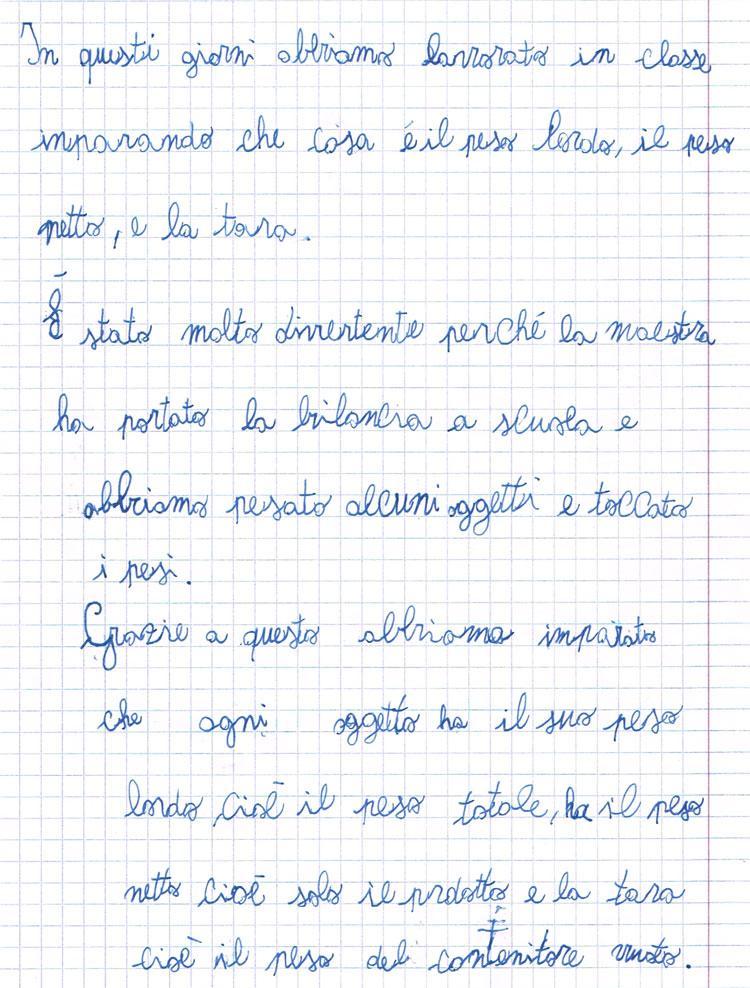 In questi giorni abbiamo lavorato in classe
imparando che cosa é il peso lordo, il peso
netto, e la tara.
É stato molto divertente perché la maestra
ha portato la bilancia a scuola e
abbiamo pesato alcuni oggetti e toccato
i pesi.
Grazie a questo abbiamo imparato
che ogni oggetto ha il suo peso
lordo, cioè il peso totale, ha il peso
netto cioè solo il prdotto e la tara
cioè il peso del contenitore vuoto.